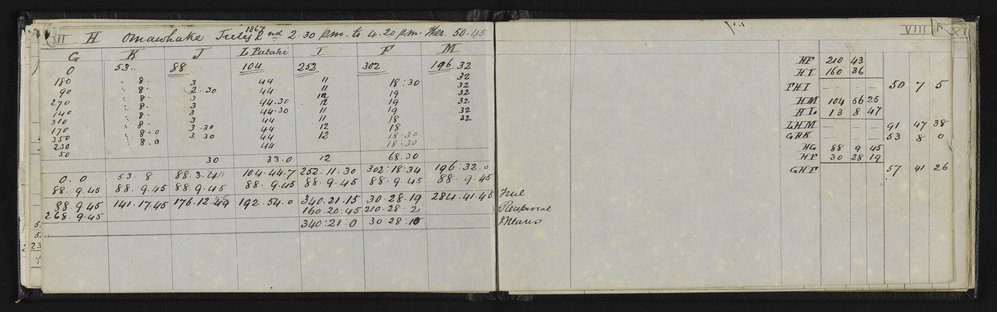 H Omawhake July 2nd 1867 2 30 p.m. to 4.20 p.m. Ther. 50-45
G K J L Putahi I F M
0 53.. 88 104 252 302 196 32
180 8. 3 44 11 18.30 32
90 8. 2.30 44 11 19 32
270 8. 3 44.30 12 19 32
140 8. 3 44.30 11 19 32
310 8. 3 44 11 18 32
170 8.0 3.30 44 12 18
350 8.0 3 30 44 12 18.30
230 44 18.30
50
30 33.0 12 68.30
0.0 53.8 88.3.4 104.44.7 252.11.30 302.18.34 196.32.0
88.9.45 88.9.45 88.9.45 88.9.45 88.9.45 88.9.45 88.9.45
88.9.45 141.17.45 176.12.49 192.54.0 340.21.15 30.28.19 284.41.45 True
268.9.45 160.20.45 210.28.2 Reciprocal
340:21:0 30.28.10 Means
VIII
HF 210 43
HI 160 36
FHI 50 7 5
HM 104 56 25
HL 13 8 47
LHM 91 47 38
GHK 53 8 0
HG 88 9 45
HF 30 28 19
GHF 57 41 26